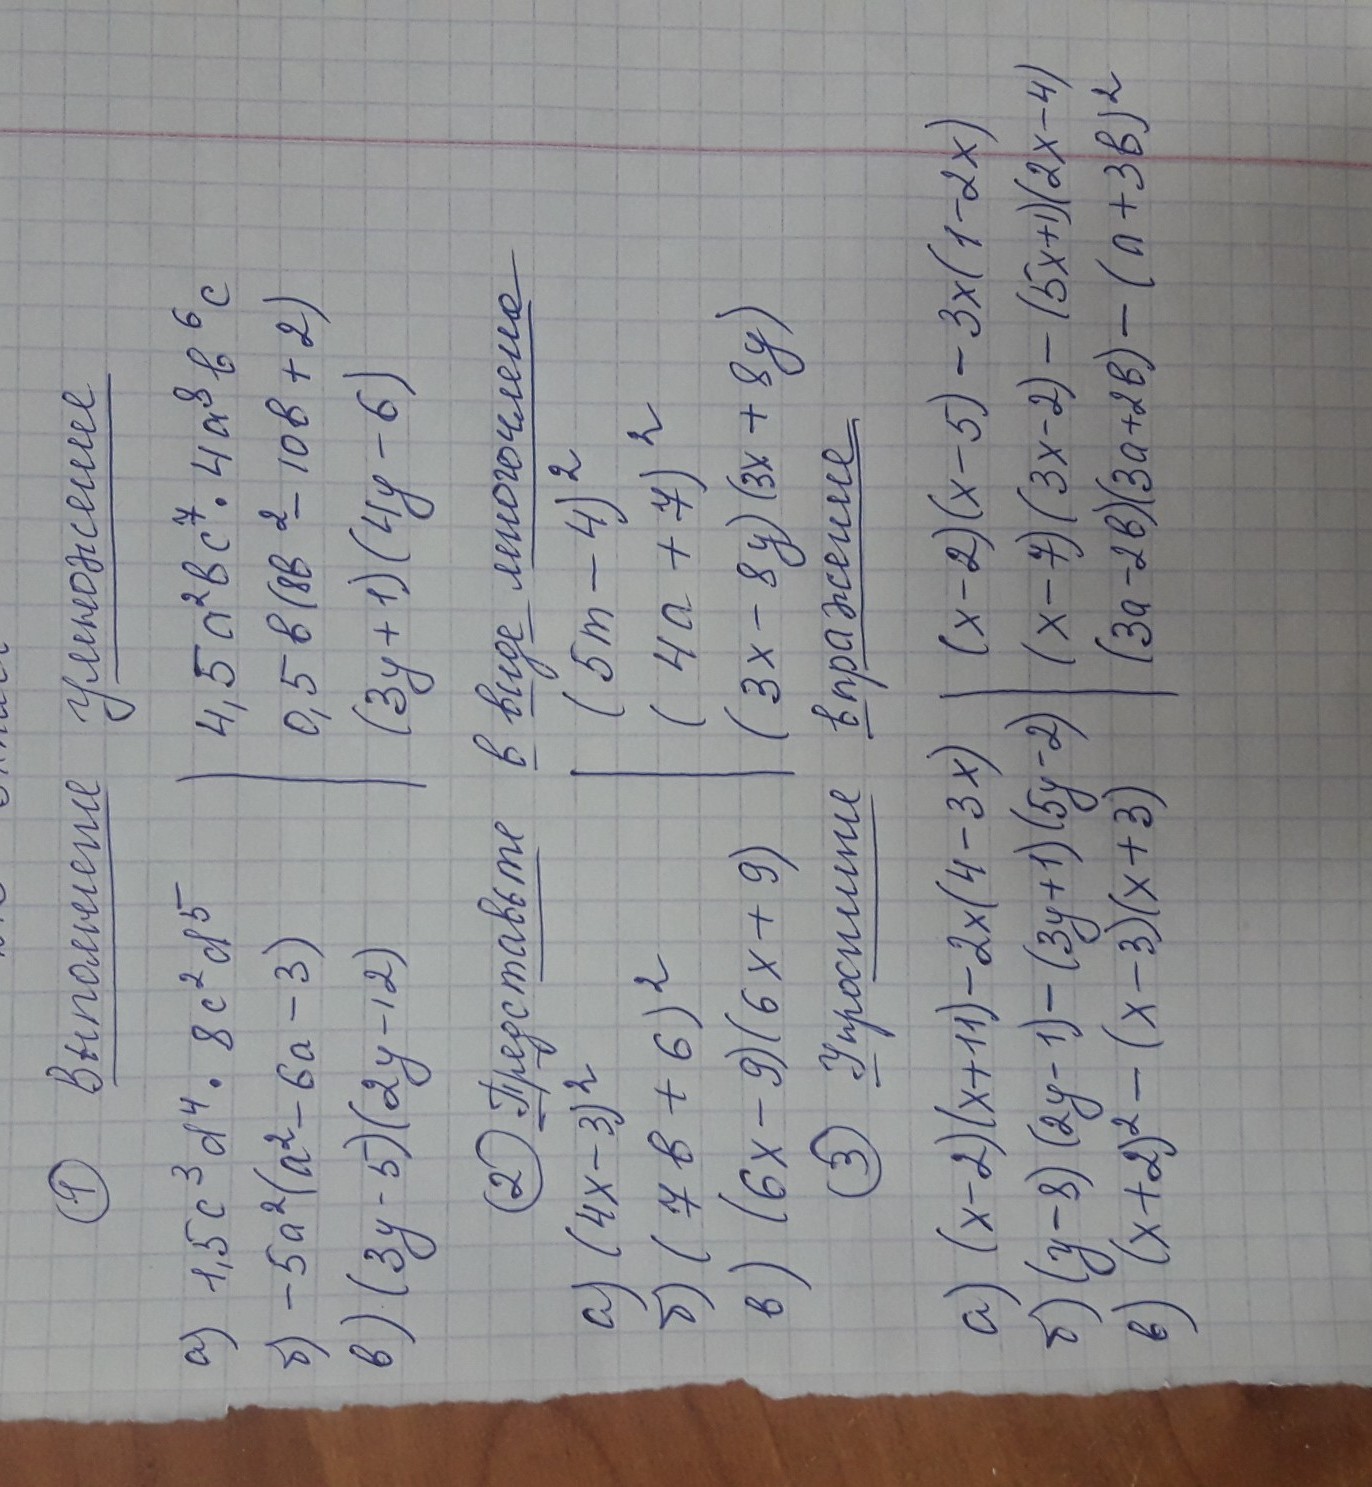 ① Выполнение умножение
а) 1,5c³d⁴ · 8c²d⁵ | 4,5a²вc⁷ · 4a⁸в⁶c
б) -5a²(a² - 6a - 3) | 0,5в(8в² - 10в + 2)
в) (3y - 5)(2y - 12) | (3y + 1)(4y - 6)
② Представьте в виде многочлена
а) (4x - 3)² | (5m - 4)²
б) (7в + 6)² | (4a + 7)²
в) (6x - 9)(6x + 9) | (3x - 8y)(3x + 8y)
③ Упростите вражение
а) (x - 2)(x + 11) - 2x(4 - 3x) | (x - 2)(x - 5) - 3x(1 - 2x)
б) (y - 8)(2y - 1) - (3y + 1)(5y - 2) | (x - 7)(3x - 2) - (5x + 1)(2x - 4)
в) (x + 2)² - (x - 3)(x + 3) | (3a - 2в)(3a + 2в) - (a + 3в)²